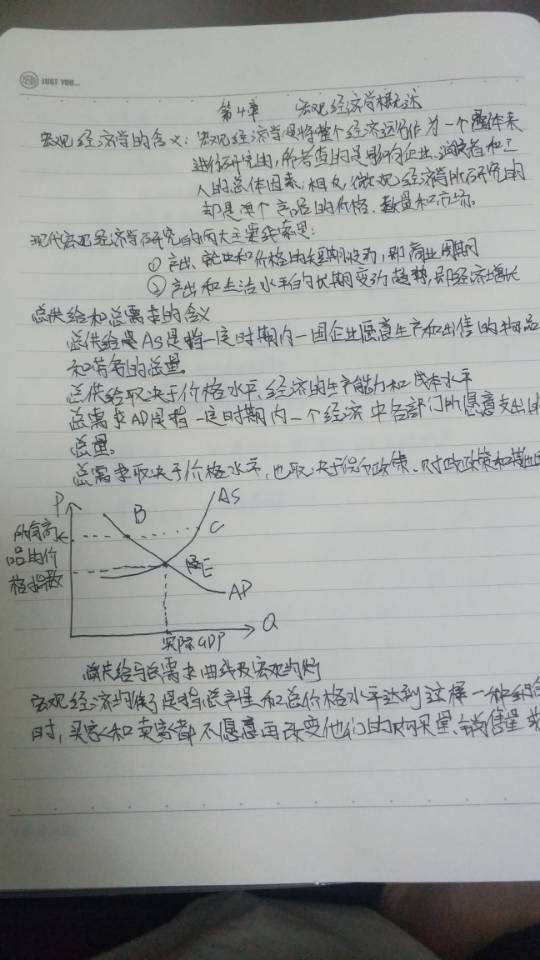 JUST YOU...
第4章 宏观经济学概述
宏观经济学的含义：宏观经济学是将整个经济运行作为一个整体来
进行研究的，所考查的是影响企业、消费者和工
人的总体因素，相反，微观经济学所研究的
却是单个产品的价格、数量和市场。
现代宏观经济学研究的两大主要线索是：
①产出、就业和价格的短期波动，即商业周期
②产出和生活水平的长期变动趋势，即经济增长
总供给和总需求的含义
总供给AS是指一定时期内一国企业愿意生产和出售的物品
和劳务的总量
总供给取决于价格水平、经济的生产能力和成本水平
总需求AD是指一定时期内一个经济中各部门所愿意支出的
总量。
总需求取决于价格水平，也取决于货币政策、财政政策和其他
P AS
B
所有商 C
品的价
格指数 E
AP
Q
实际GDP
总供给与总需求曲线及宏观均衡
宏观经济均衡是指总产量和总价格水平达到这样一种组合
时，买家和卖家都不愿意再改变他们的购买量、销售量或